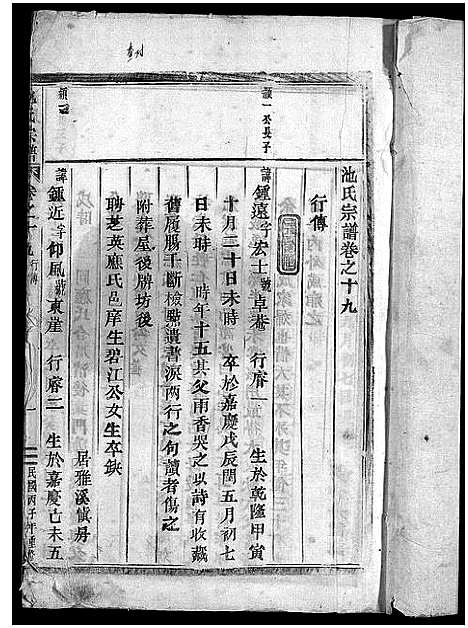 池氏宗譜卷之十九
行傳
韻一公長子
諱鍾遠字宏士號卓菴 行廥一 生於乾隆甲寅
十月二十日未時 卒於嘉慶戊辰閏五月初七
日未時 時年十五其父雨香哭之以詩有收藏
舊履腸千斷檢點遺書淚兩行之句讀者傷之
附葬屋後牌坊後
聘芝英應氏邑庠生碧江公女生卒缺
居雅溪慎房
諱鍾近字仰風號東崖 行廥二 生於嘉慶己未五
卷之十九 行傳
民國丙子年重修